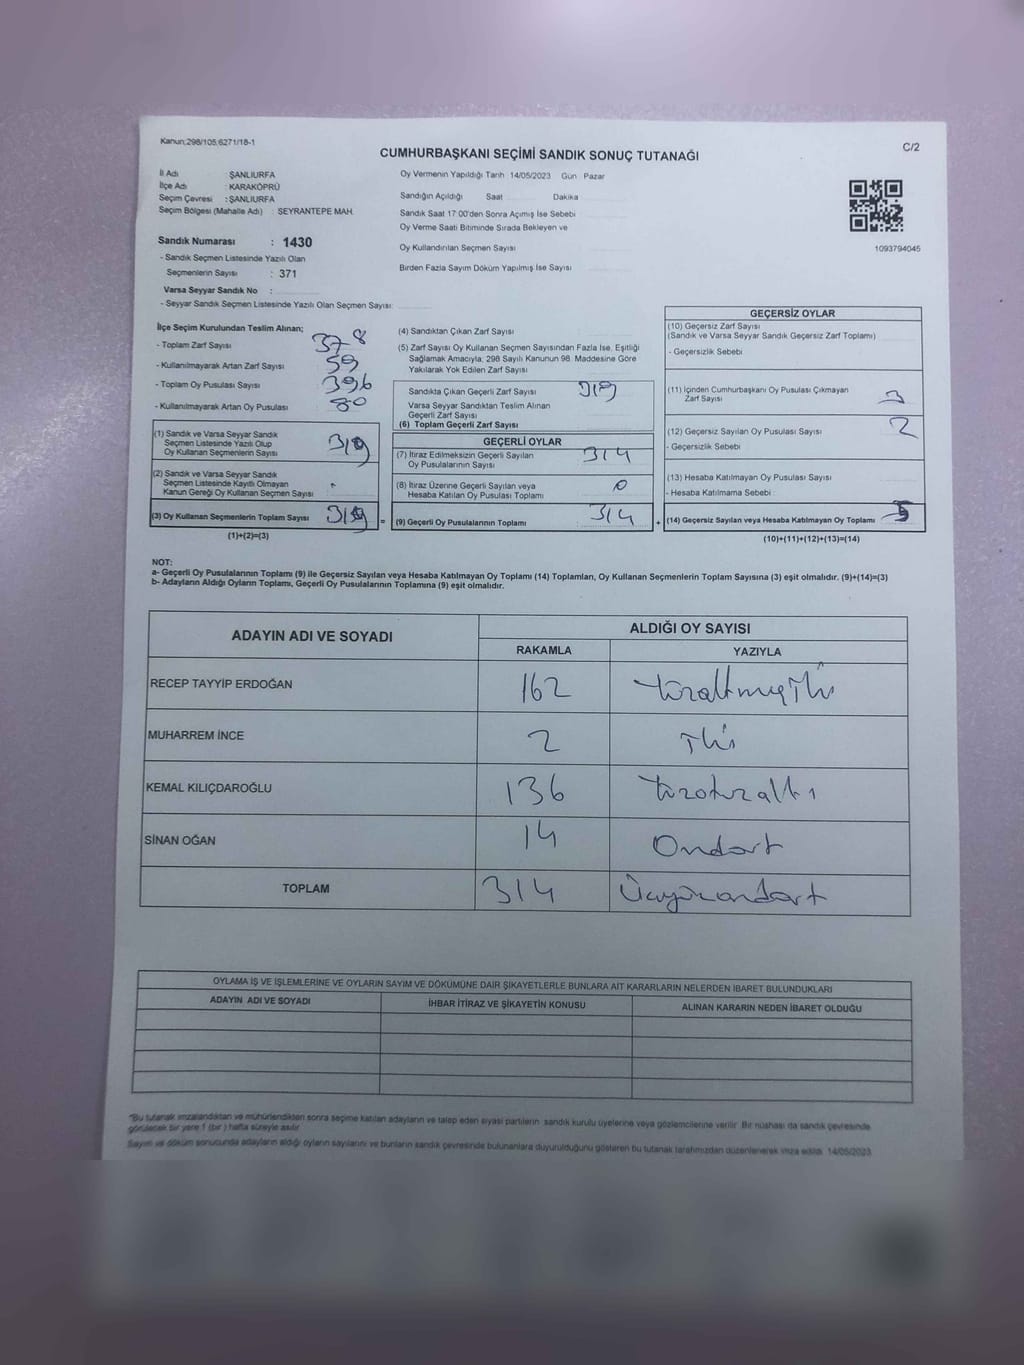 Kanun;298/105,6271/18-1
C/2
CUMHURBAŞKANI SEÇİMİ SANDIK SONUÇ TUTANAĞI
İl Adı : ŞANLIURFA
İlçe Adı : KARAKÖPRÜ
Seçim Çevresi : ŞANLIURFA
Seçim Bölgesi (Mahalle Adı) : SEYRANTEPE MAH.
Sandık Numarası : 1430
- Sandık Seçmen Listesinde Yazılı Olan
Seçmenlerin Sayısı : 371
Varsa Seyyar Sandık No :
- Seyyar Sandık Seçmen Listesinde Yazılı Olan Seçmen Sayısı:
Oy Vermenin Yapıldığı Tarih 14/05/2023 Gün Pazar
Sandığın Açıldığı Saat Dakika
Sandık Saat 17:00'den Sonra Açılmış İse Sebebi
Oy Verme Saati Bitiminde Sırada Bekleyen ve
Oy Kullandırılan Seçmen Sayısı
Birden Fazla Sayım Döküm Yapılmış İse Sayısı
1093794045
İlçe Seçim Kurulundan Teslim Alınan;
- Toplam Zarf Sayısı 378
- Kullanılmayarak Artan Zarf Sayısı 59
- Toplam Oy Pusulası Sayısı 396
- Kullanılmayarak Artan Oy Pusulası 80
(1) Sandık ve Varsa Seyyar Sandık
Seçmen Listesinde Yazılı Olup
Oy Kullanan Seçmenlerin Sayısı 319
(2) Sandık ve Varsa Seyyar Sandık
Seçmen Listesinde Kayıtlı Olmayan
Kanun Gereği Oy Kullanan Seçmen Sayısı
(3) Oy Kullanan Seçmenlerin Toplam Sayısı 319
(1)+(2)=(3)
=
(4) Sandıktan Çıkan Zarf Sayısı
(5) Zarf Sayısı Oy Kullanan Seçmen Sayısından Fazla İse, Eşitliği
Sağlamak Amacıyla; 298 Sayılı Kanunun 98. Maddesine Göre
Yakılarak Yok Edilen Zarf Sayısı
Sandıkta Çıkan Geçerli Zarf Sayısı 319
Varsa Seyyar Sandıktan Teslim Alınan
Geçerli Zarf Sayısı
(6) Toplam Geçerli Zarf Sayısı
GEÇERLİ OYLAR
(7) İtiraz Edilmeksizin Geçerli Sayılan
Oy Pusulalarının Sayısı 314
(8) İtiraz Üzerine Geçerli Sayılan veya
Hesaba Katılan Oy Pusulası Toplamı 0
(9) Geçerli Oy Pusulalarının Toplamı 314
+
GEÇERSİZ OYLAR
(10) Geçersiz Zarf Sayısı
(Sandık ve Varsa Seyyar Sandık Geçersiz Zarf Toplamı)
- Geçersizlik Sebebi
(11) İçinden Cumhurbaşkanı Oy Pusulası Çıkmayan
Zarf Sayısı 3
(12) Geçersiz Sayılan Oy Pusulası Sayısı 2
- Geçersizlik Sebebi
(13) Hesaba Katılmayan Oy Pusulası Sayısı
- Hesaba Katılmama Sebebi :
(14) Geçersiz Sayılan veya Hesaba Katılmayan Oy Toplamı 5
(10)+(11)+(12)+(13)=(14)
NOT:
a- Geçerli Oy Pusulalarının Toplamı (9) ile Geçersiz Sayılan veya Hesaba Katılmayan Oy Toplamı (14) Toplamları, Oy Kullanan Seçmenlerin Toplam Sayısına (3) eşit olmalıdır. (9)+(14)=(3)
b- Adayların Aldığı Oyların Toplamı, Geçerli Oy Pusulalarının Toplamına (9) eşit olmalıdır.
ADAYIN ADI VE SOYADI
ALDIĞI OY SAYISI
RAKAMLA YAZIYLA
RECEP TAYYİP ERDOĞAN 162 Yüzaltmışİki
MUHARREM İNCE 2 İki
KEMAL KILIÇDAROĞLU 136 Yüzotuzaltı
SİNAN OĞAN 14 Ondört
TOPLAM 314 Üçyüzondört
OYLAMA İŞ VE İŞLEMLERİNE VE OYLARIN SAYIM VE DÖKÜMÜNE DAİR ŞİKAYETLERLE BUNLARA AİT KARARLARIN NELERDEN İBARET BULUNDUKLARI
ADAYIN ADI VE SOYADI İHBAR İTİRAZ VE ŞİKAYETİN KONUSU ALINAN KARARIN NEDEN İBARET OLDUĞU
"Bu tutanak imzalandıktan ve mühürlendikten sonra seçime katılan adayların ve talep eden siyasi partilerin sandık kurulu üyelerine veya gözlemcilerine verilir. Bir nüshası da sandık çevresinde
görülecek bir yere 1 (bir ) hafta süreyle asılır.
Sayım ve döküm sonucunda adayların aldığı oyların sayılarını ve bunların sandık çevresinde bulunanlara duyurulduğunu gösteren bu tutanak tarafımızdan düzenlenerek imza edildi. 14/05/2023